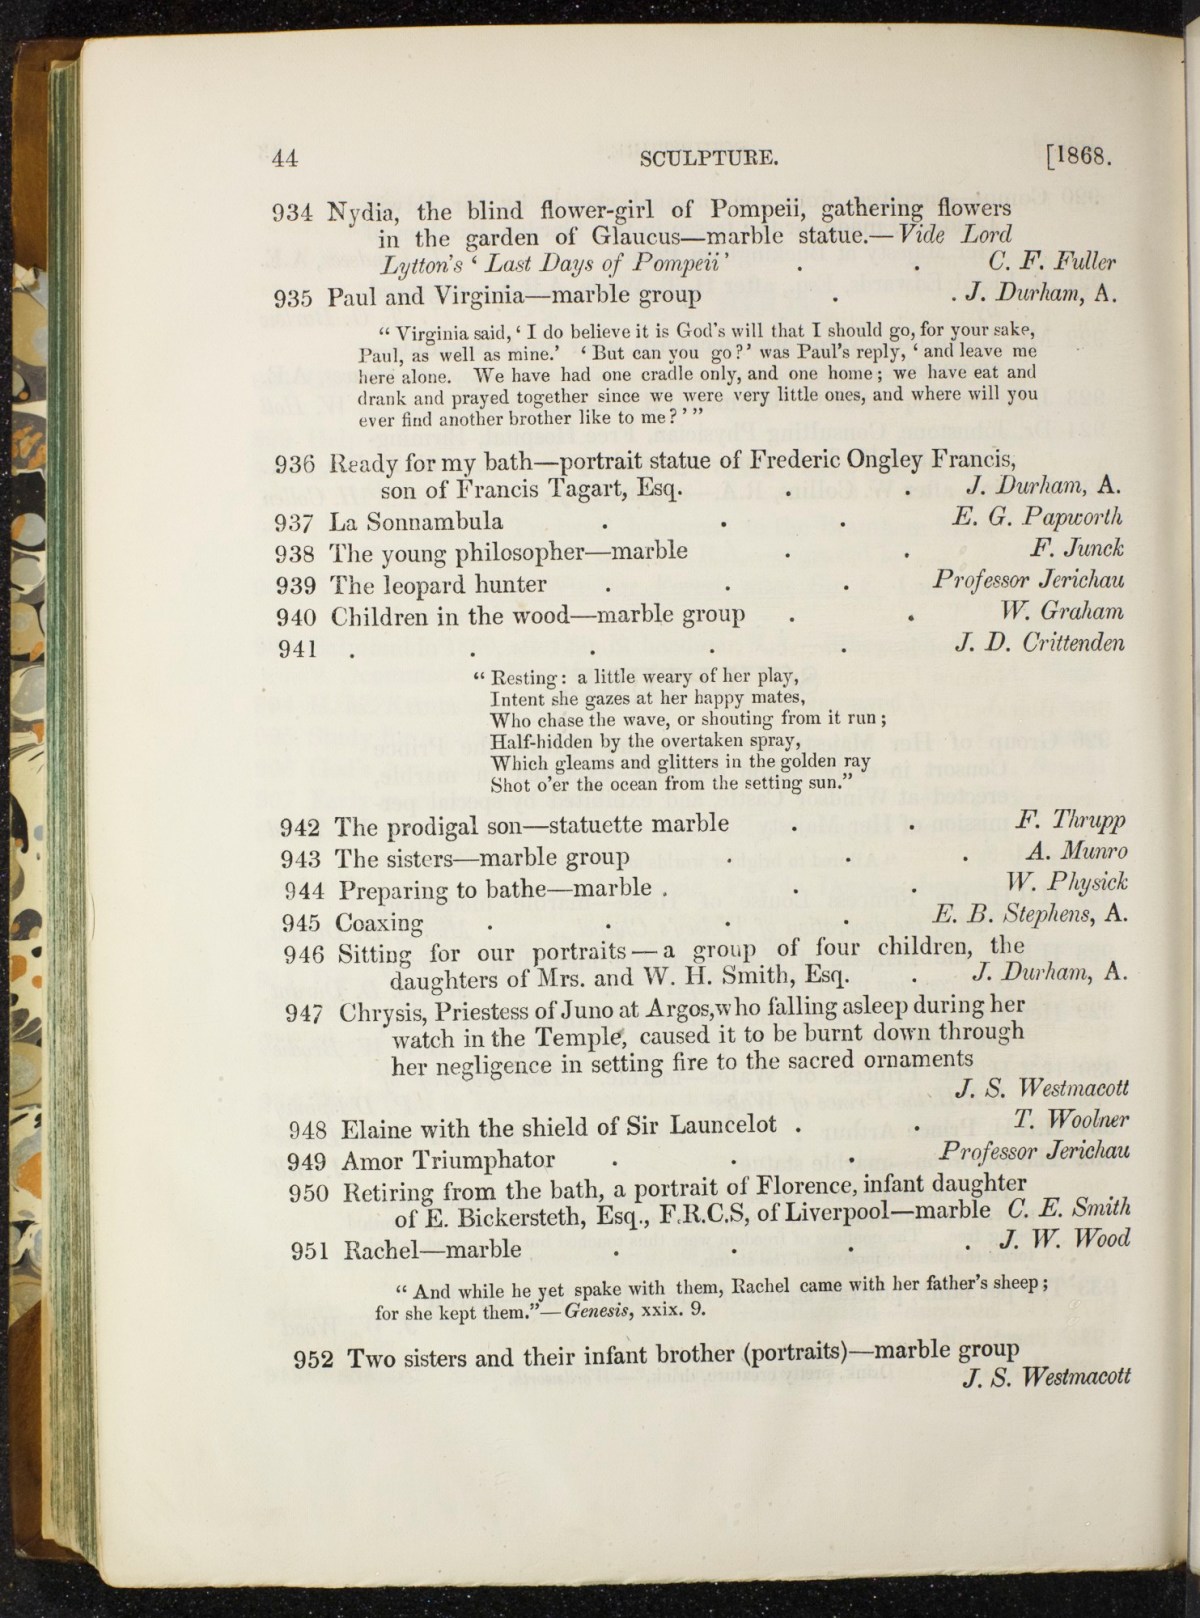 44 SCULPTURE. [1868.
934 Nydia, the blind flower-girl of Pompeii, gathering flowers
in the garden of Glaucus—marble statue.—Vide Lord
Lytton's ‘Last Days of Pompeii’ . . C. F. Fuller
935 Paul and Virginia—marble group . . J. Durham, A.
“ Virginia said, ‘ I do believe it is God's will that I should go, for your sake,
Paul, as well as mine.’ ‘ But can you go?’ was Paul's reply, ‘ and leave me
here alone. We have had one cradle only, and one home; we have eat and
drank and prayed together since we were very little ones, and where will you
ever find another brother like to me?’”
936 Ready for my bath—portrait statue of Frederic Ongley Francis,
son of Francis Tagart, Esq. . . J. Durham, A.
937 La Sonnambula . . . E. G. Papworth
938 The young philosopher—marble . . F. Junck
939 The leopard hunter . . . Professor Jerichau
940 Children in the wood—marble group . . W. Graham
941 . . . . . J. D. Crittenden
“ Resting: a little weary of her play,
Intent she gazes at her happy mates,
Who chase the wave, or shouting from it run;
Half-hidden by the overtaken spray,
Which gleams and glitters in the golden ray
Shot o'er the ocean from the setting sun.”
942 The prodigal son—statuette marble . . F. Thrupp
943 The sisters—marble group . . . A. Munro
944 Preparing to bathe—marble . . . W. Physick
945 Coaxing . . . . E. B. Stephens, A.
946 Sitting for our portraits—a group of four children, the
daughters of Mrs. and W. H. Smith, Esq. . J. Durham, A.
947 Chrysis, Priestess of Juno at Argos,who falling asleep during her
watch in the Temple, caused it to be burnt down through
her negligence in setting fire to the sacred ornaments
J. S. Westmacott
948 Elaine with the shield of Sir Launcelot . . T. Woolner
949 Amor Triumphator . . . Professor Jerichau
950 Retiring from the bath, a portrait of Florence, infant daughter
of E. Bickersteth, Esq., F.R.C.S, of Liverpool—marble C. E. Smith
951 Rachel—marble . . . . J. W. Wood
“ And while he yet spake with them, Rachel came with her father's sheep;
for she kept them.”—Genesis, xxix. 9.
952 Two sisters and their infant brother (portraits)—marble group
J. S. Westmacott